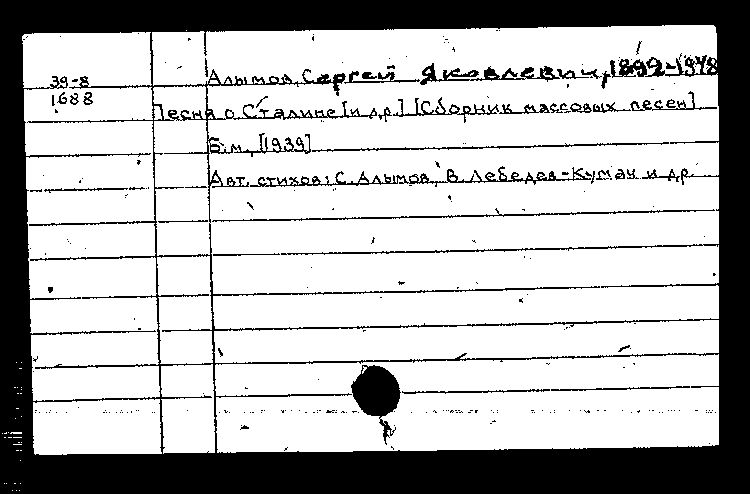 39-8
1688
Алымов, Сергей Яковлевич, 1892-1948
Песня о Сталине [и др.] [Сборник массовых песен]
Б.м., [1939]
Авт. стихов: С. Алымов, В. Лебедев-Кумач и др.